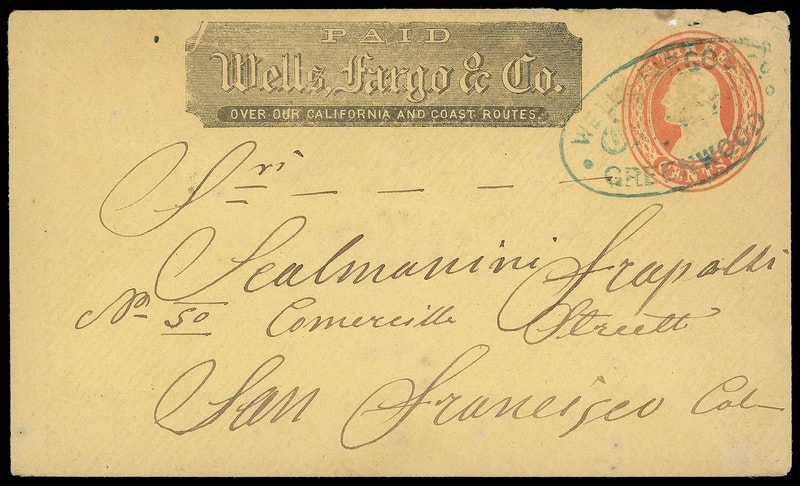 PAID
Wells, Fargo & Co.
OVER OUR CALIFORNIA AND COAST ROUTES.
WELLS FARGO & CO.
GREENWOOD
THREE
CENTS
Sri
Scalmanini Frapolli
No 50 Comercille Streett
San Francisco Cal